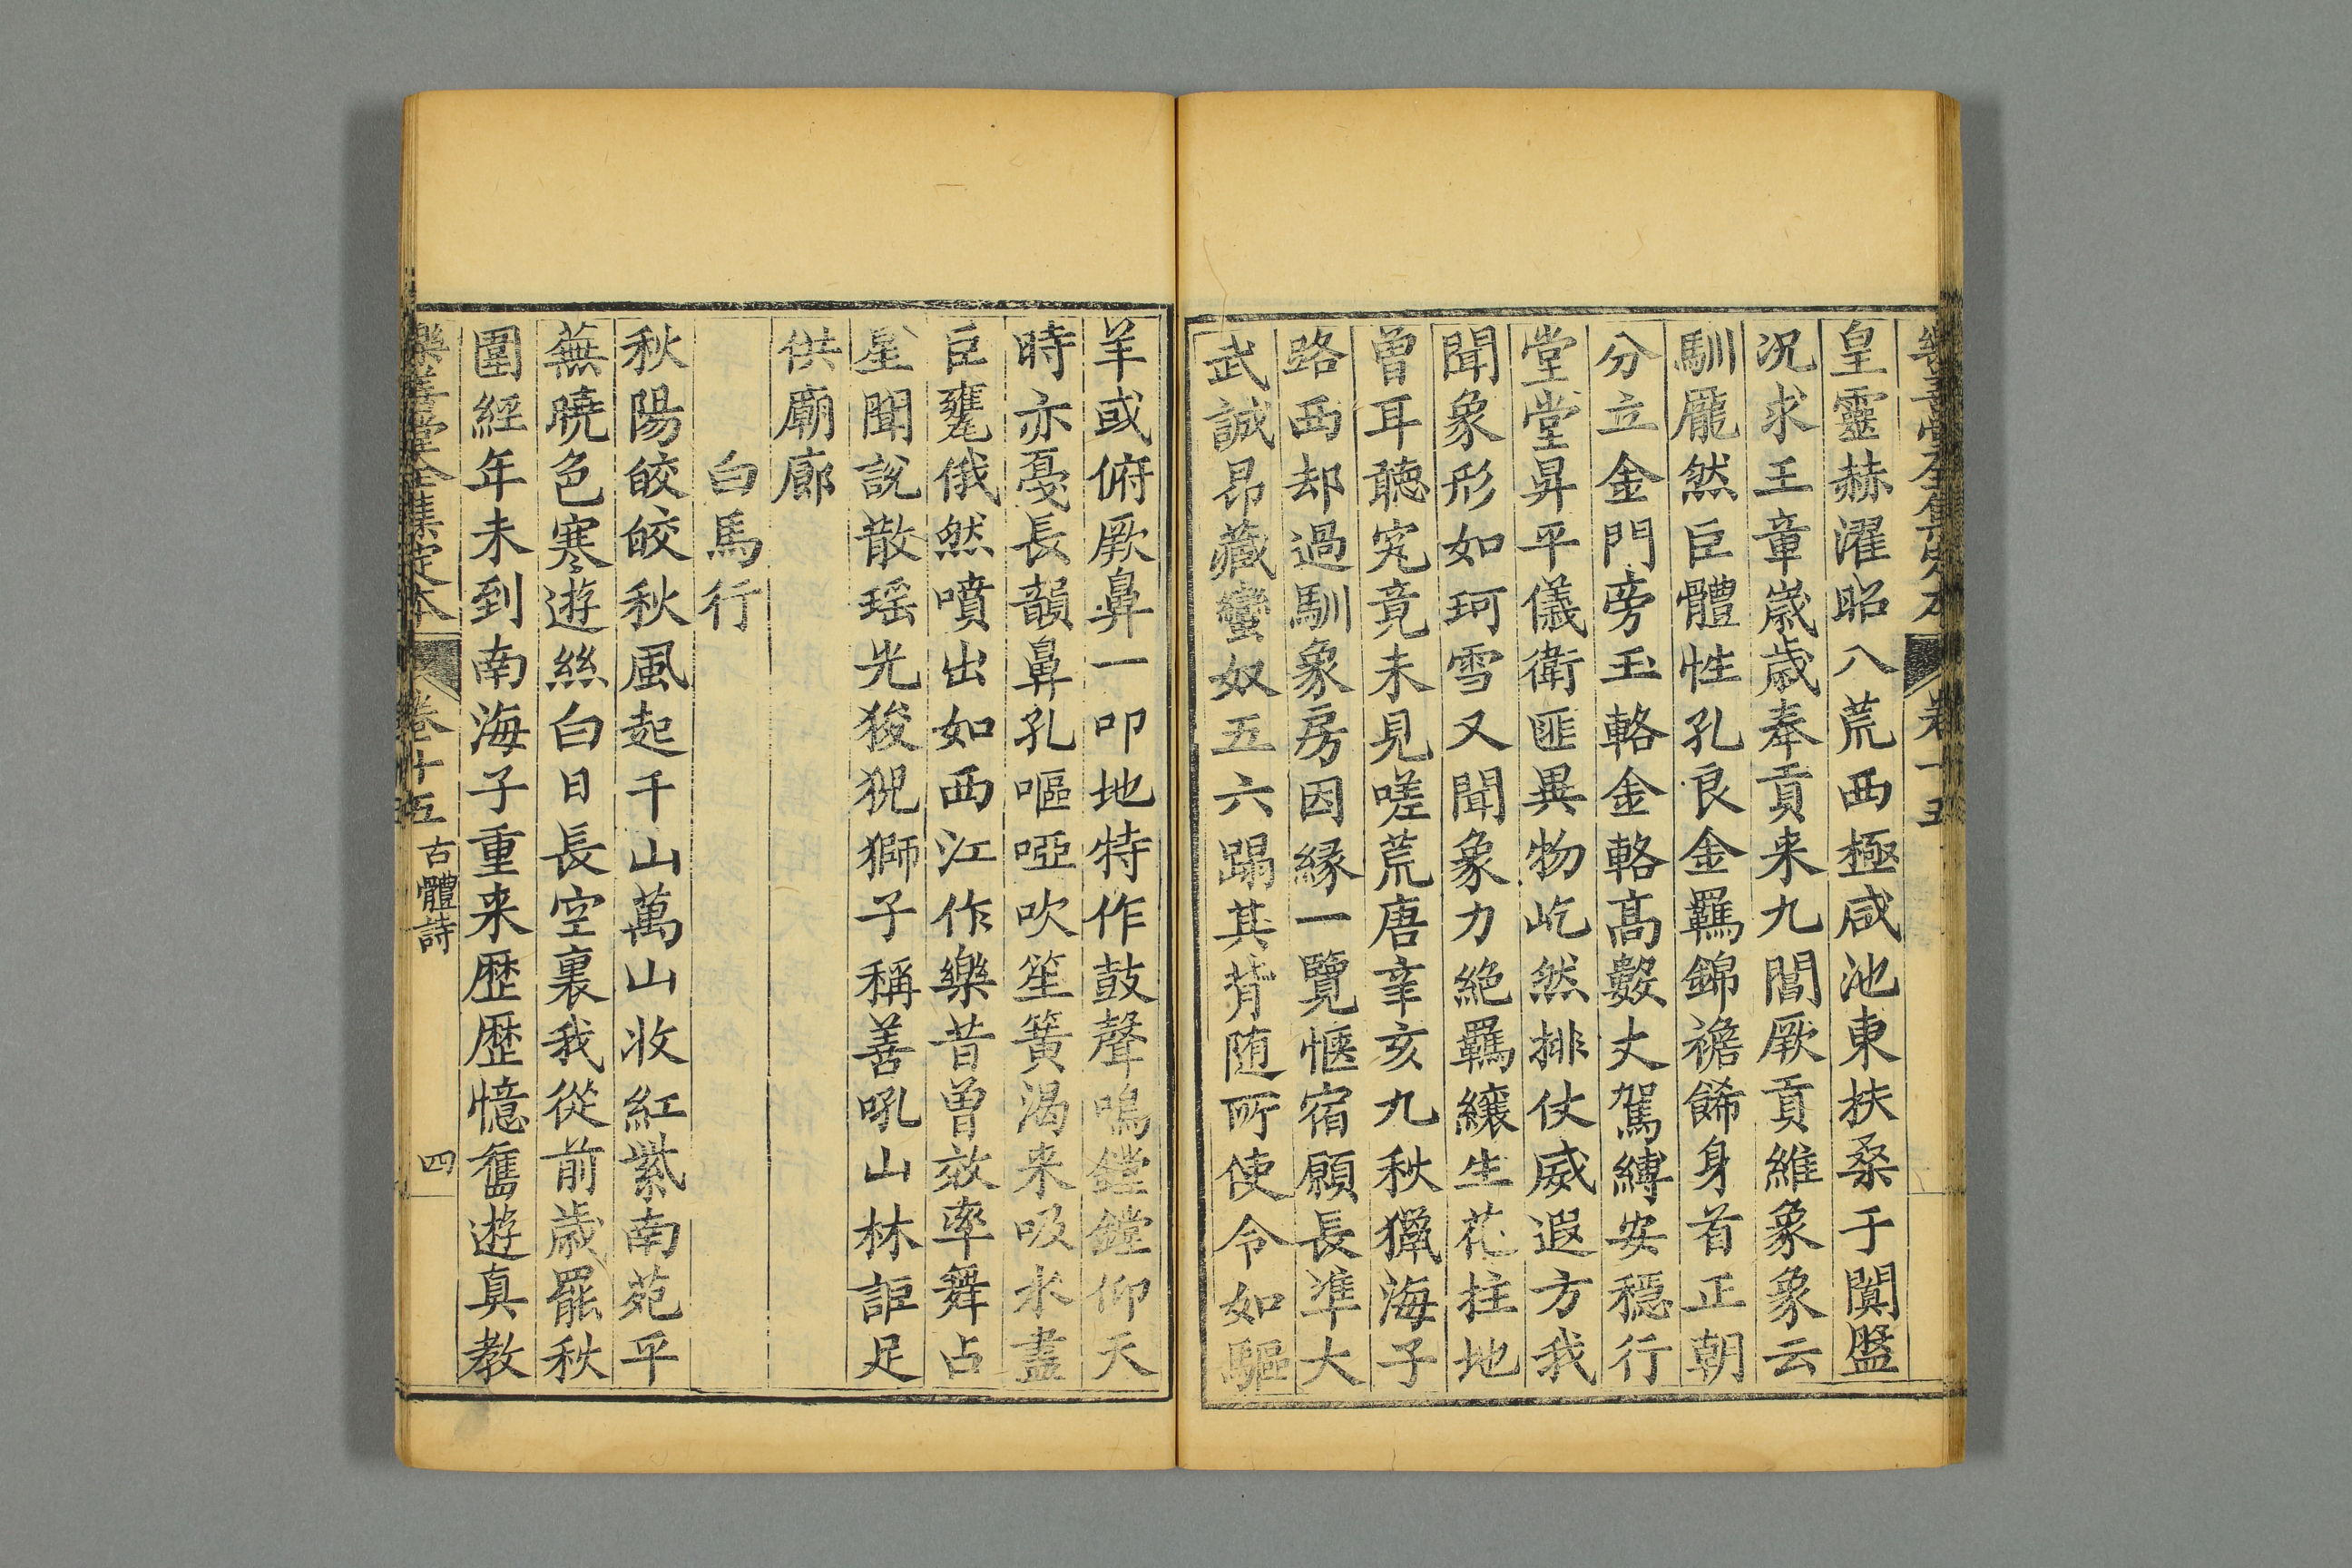 樂善堂全集定本 卷十五
皇靈赫濯昭八荒西極咸池東扶桑于闐盤
况求王章嵗歳奉貢来九閶厥貢維象象云
馴龎然巨體性孔良金羈錦襜餙身首正朝
分立金門旁玉輅金輅髙數丈駕縳安穏行
堂堂昇平儀衛匪異物屹然排仗威遐方我
聞象形如珂雪又聞象力絶羈纕生花拄地
曾耳聽究竟未見嗟荒唐辛亥九秋獵海子
路西却過馴象房因縁一覽愜宿願長凖大
武誠昂藏蠻奴五六蹋其背随所使令如驅
羊或俯厥鼻一叩地特作鼓聲鳴鏜鏜仰天
時亦戞長韻鼻孔嘔啞吹笙簧渴来吸水盡
巨甕俄然噴出如西江作樂昔曾效率舞占
星聞説散瑶光狻猊獅子稱善吼山林詎足
供廟廊
白馬行
秋陽皎皎秋風起千山萬山收紅紫南苑平
蕪曉色寒逰絲白日長空裏我從前歳罷秋
圍經年未到南海子重来歴歴憶舊遊真教
樂善堂全集定本 卷十五 古體詩 四